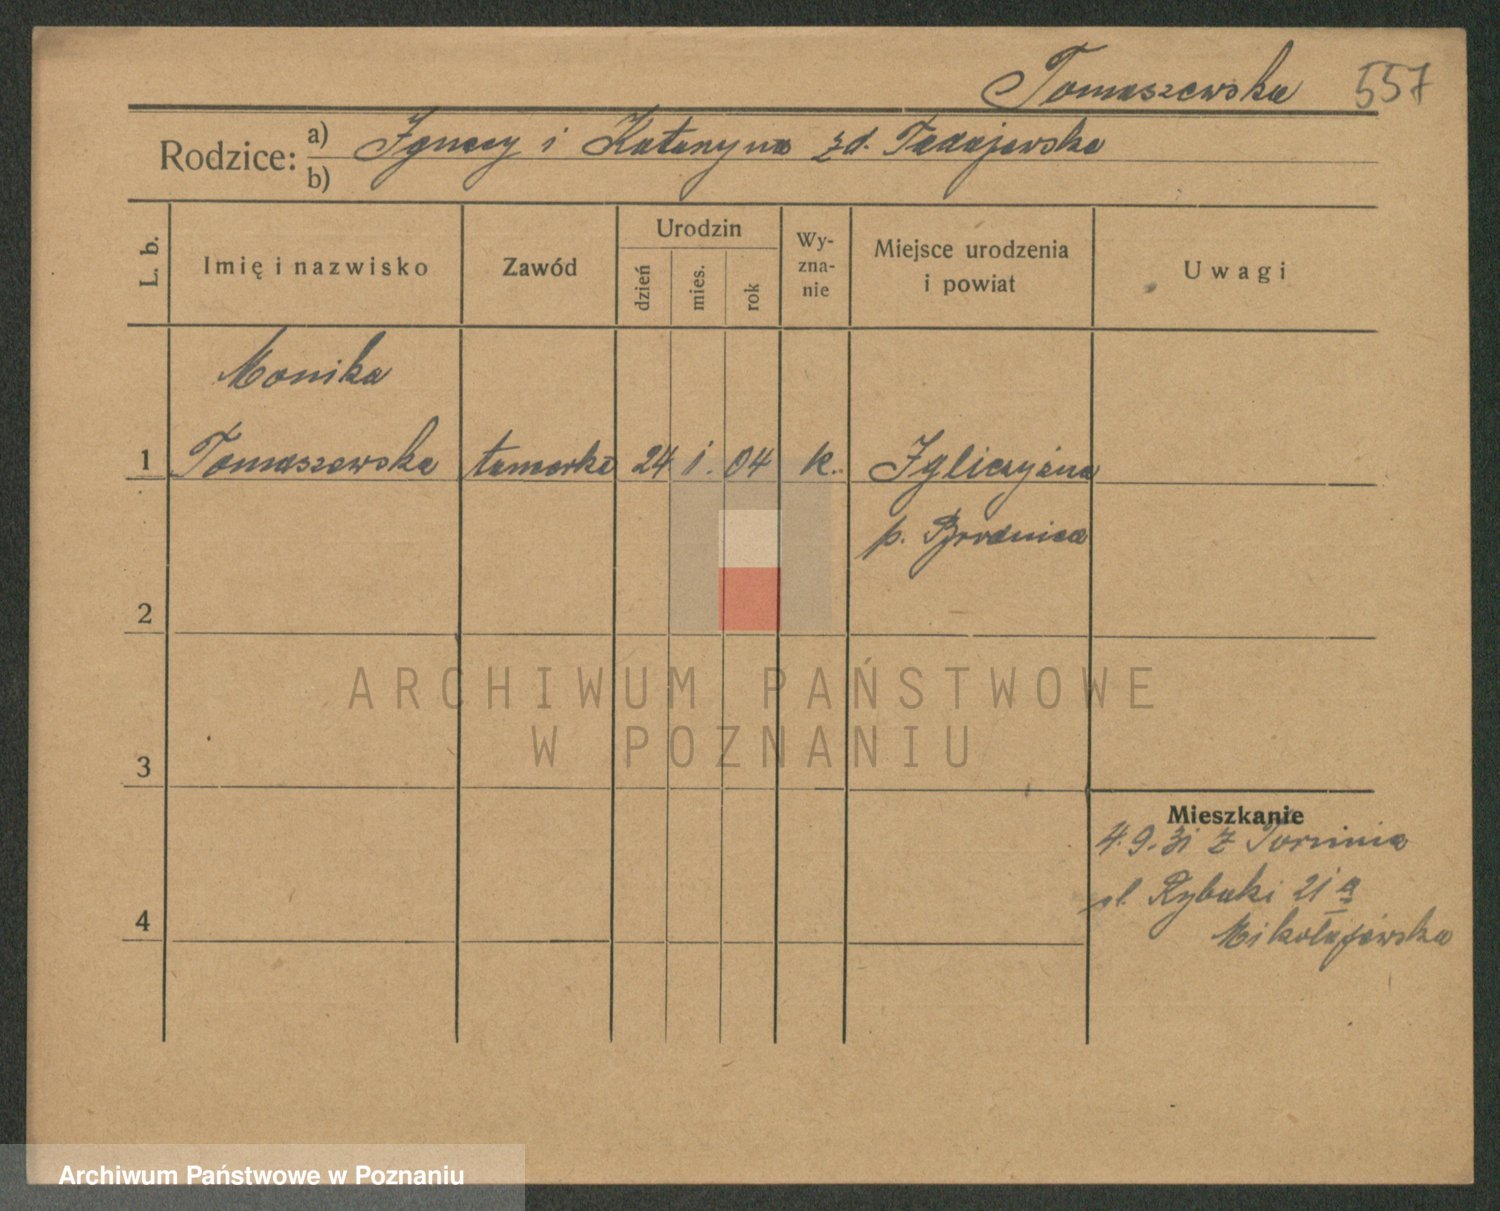 Tomaszewska 557
Rodzice: a) Ignacy i Katarzyna zd. Tadajewska
b)
L. b. Imię i nazwisko Zawód Urodzin dzień mies. rok Wy-zna-nie Miejsce urodzenia i powiat Uwagi
Monika
1 Tomaszewska 24 1. 04 k. Igliczyzna
p. Brodnica
2
3
ARCHIWUM PAŃSTWOWE
W POZNANIU
Mieszkanie
4.9.31 z Torunia
ul. Rybaki 21 a
4
Mikołajewska
Archiwum Państwowe w Poznaniu